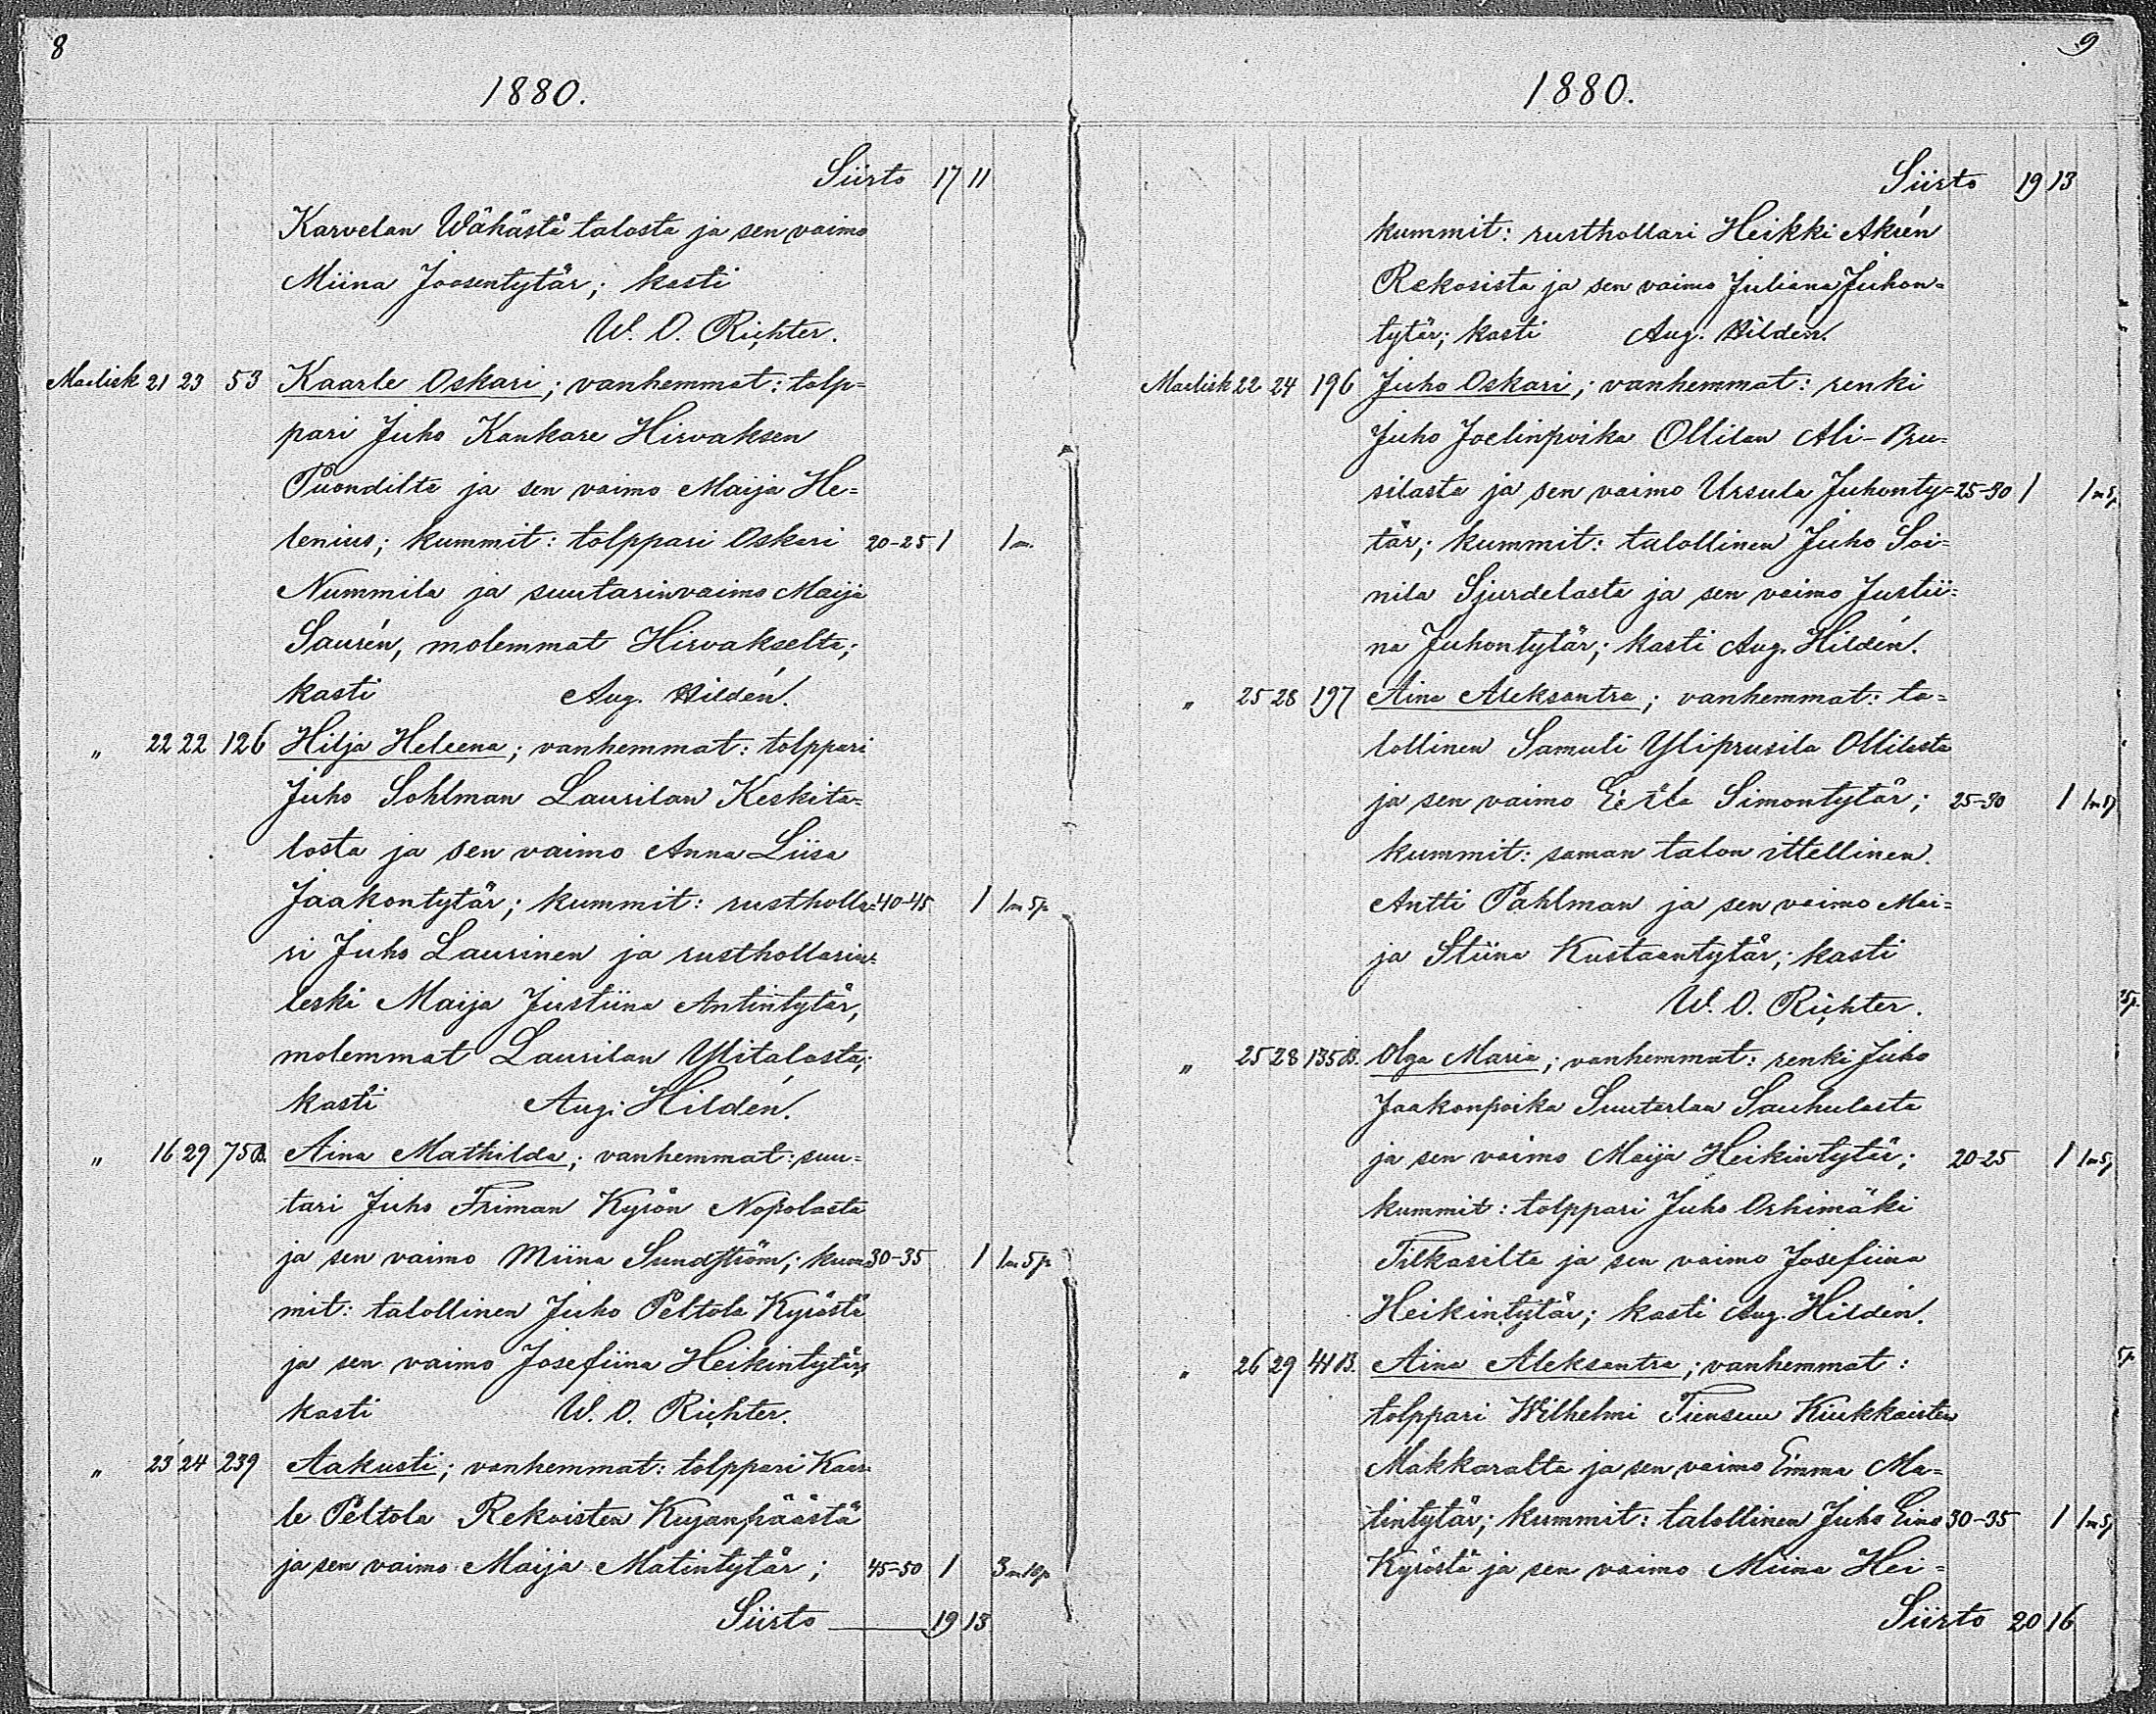 8
1880.
Siirto 17 11
Karvelan Wähästä talosta ja sen vaimo
Miina Joosentytär; kasti
W. O. Richter.
Maalisk 21 23 53 Kaarle Oskari; vanhemmat: tolp-
pari Juho Kankare Hirvaksen
Puondilta ja sen vaimo Maija He=
lenius; kummit: tolppari Oskari 20-25 1 1 m.
Nummila ja suutarinvaimo Maija
Saurén, molemmat Hirvakselta;
kasti Aug. Hildén.
" 22 22 126 Hilja Heleena; vanhemmat: tolppari
Juho Sohlman Laurilan Keskita-
losta ja sen vaimo Anna Liisa
Jaakontytär; kummit: rustholla= 40-45 1 1m 5p
ri Juho Laurinen ja rusthollarin=
leski Maija Justiina Antintytär,
molemmat Laurilan Ylitalosta;
kasti Aug. Hildén.
" 16 29 75B. Aina Mathilda; vanhemmat: suu=
tari Juho Friman Kyrön Nopolasta
ja sen vaimo Miina Sundström; kum= 30-35 1 1m 5p
mit: talollinen Juho Peltola Kyröstä
ja sen vaimo Josefiina Heikintytär;
kasti W. O. Richter.
" 23 24 239 Aakusti; vanhemmat: tolppari Kaar-
le Peltola Rekoisten Kujanpäästä
ja sen vaimo Maija Matintytär; 45-50 1 3m 10p
Siirto 19 13
9
1880.
Siirto 19 13
kummit: rusthollari Heikki Akrén
Rekosista ja sen vaimo Juliana Juhon=
tytär; kasti Aug. Hildén.
Maalisk 22 24 196 Juho Oskari; vanhemmat: renki
Juho Joelinpoika Ollilan Ali-Pru=
silasta ja sen vaimo Ursula Juhonty= 25-30 1 1m 5p
tär; kummit: talollinen Juho Soi=
nila Sjurdelasta ja sen vaimo Justii=
na Juhontytär; kasti Aug. Hildén.
" 25 28 197 Aina Aleksantra; vanhemmat: ta=
lollinen Samuli Yliprusila Ollilasta
ja sen vaimo Simontytär; 25-30 1 1m 5p
kummit: saman talon ittellinen
Antti Påhlman ja sen vaimo Mai=
ja Stiina Kustaantytär; kasti
W. O. Richter. 5p.
" 25 28 135B. Olga Maria; vanhemmat: renki Juho
Jaakonpoika Suutarlan Sauhulasta
ja sen vaimo Maija Heikintytär; 20-25 1 1m 5p
kummit: tolppari Juho Orhimäki
Tilkasilta ja sen vaimo Josefiina
Heikintytär; kasti Aug. Hildén.
" 26 29 41B. Aina Aleksantra; vanhemmat: 5p
tolppari Wilhelmi Tiensuu Kiukkaisten
Makkaralta ja sen vaimo Emma Ma=
tintytär; kummit: talollinen Juho Eino 30-35 1 1m 5p
Kyröstä ja sen vaimo Miina Hei=
Siirto 20 16